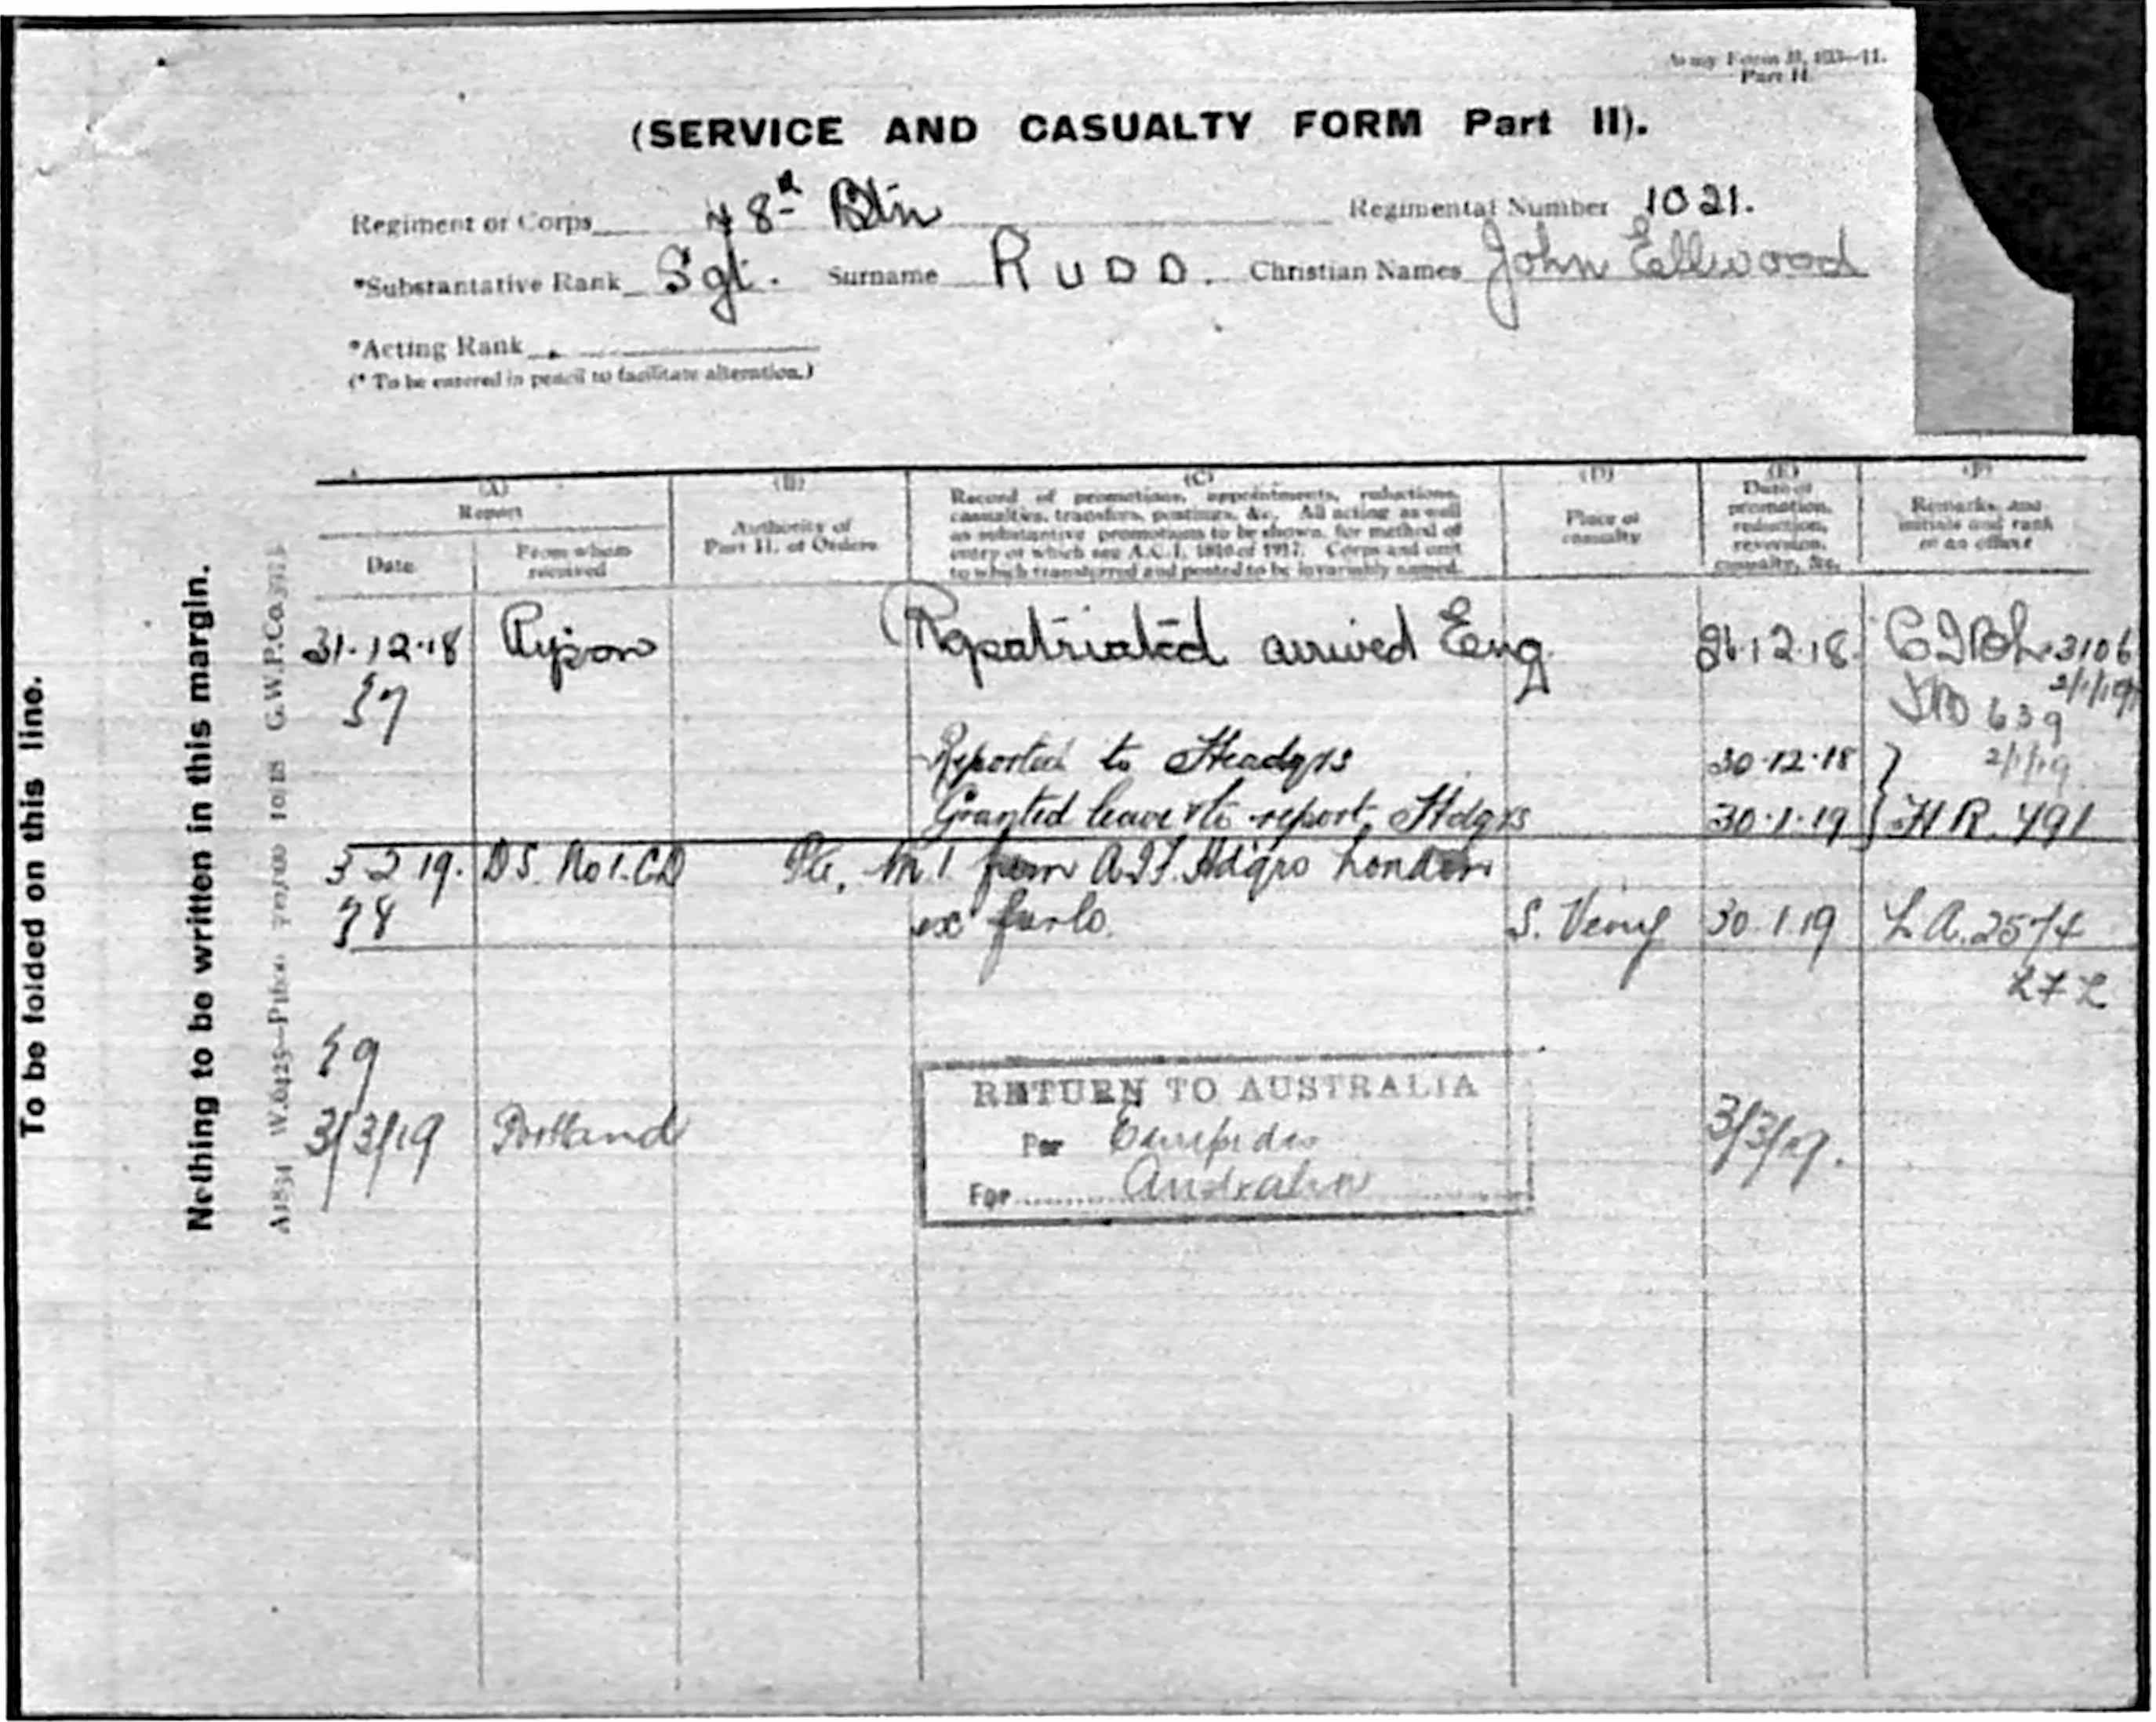 Army Form B. 103—II.
Part II
(SERVICE AND CASUALTY FORM Part II).
Regiment or Corps 48th Btn Regimental Number 1021.
*Substantative Rank Sgt. Surname RUDD. Christian Names John Ellwood
*Acting Rank
(* To be entered in pencil to facilitate alteration.)
(A) Report
Date
From whom received
(B)
Authority of Part II. of Orders
(C)
Record of promotions, appointments, reductions,
casualties, transfers, postings, &c. All acting as well
as substantive promotions to be shown, for method of
entry of which see A.C.I. 1816 of 1917. Corps and unit
to which transferred and posted to be invariably named.
(D)
Place of casualty
(E)
Date of promotion, reduction, reversion, casualty, &c.
(F)
Remarks, and initials and rank of an officer
31.12.18 Ripon Repatriated arrived Eng. 26.12.18 3106
57 2/1/19
639
Reported to Headqrs 30.12.18 2/1/19
Granted leave & to report Hdqrs 30.1.19 H.R. 491
3 2 19. DS. No 1. CD M.I from A.I.F. Hdqrs London
58 ex furlo. S. Veny 30.1.19 L A. 25/4
272
59
3/3/19 Portland 3/3/19.
RETURN TO AUSTRALIA
Per Euripides
For Australia
To be folded on this line.
Nothing to be written in this margin.
G.W.P.Co.